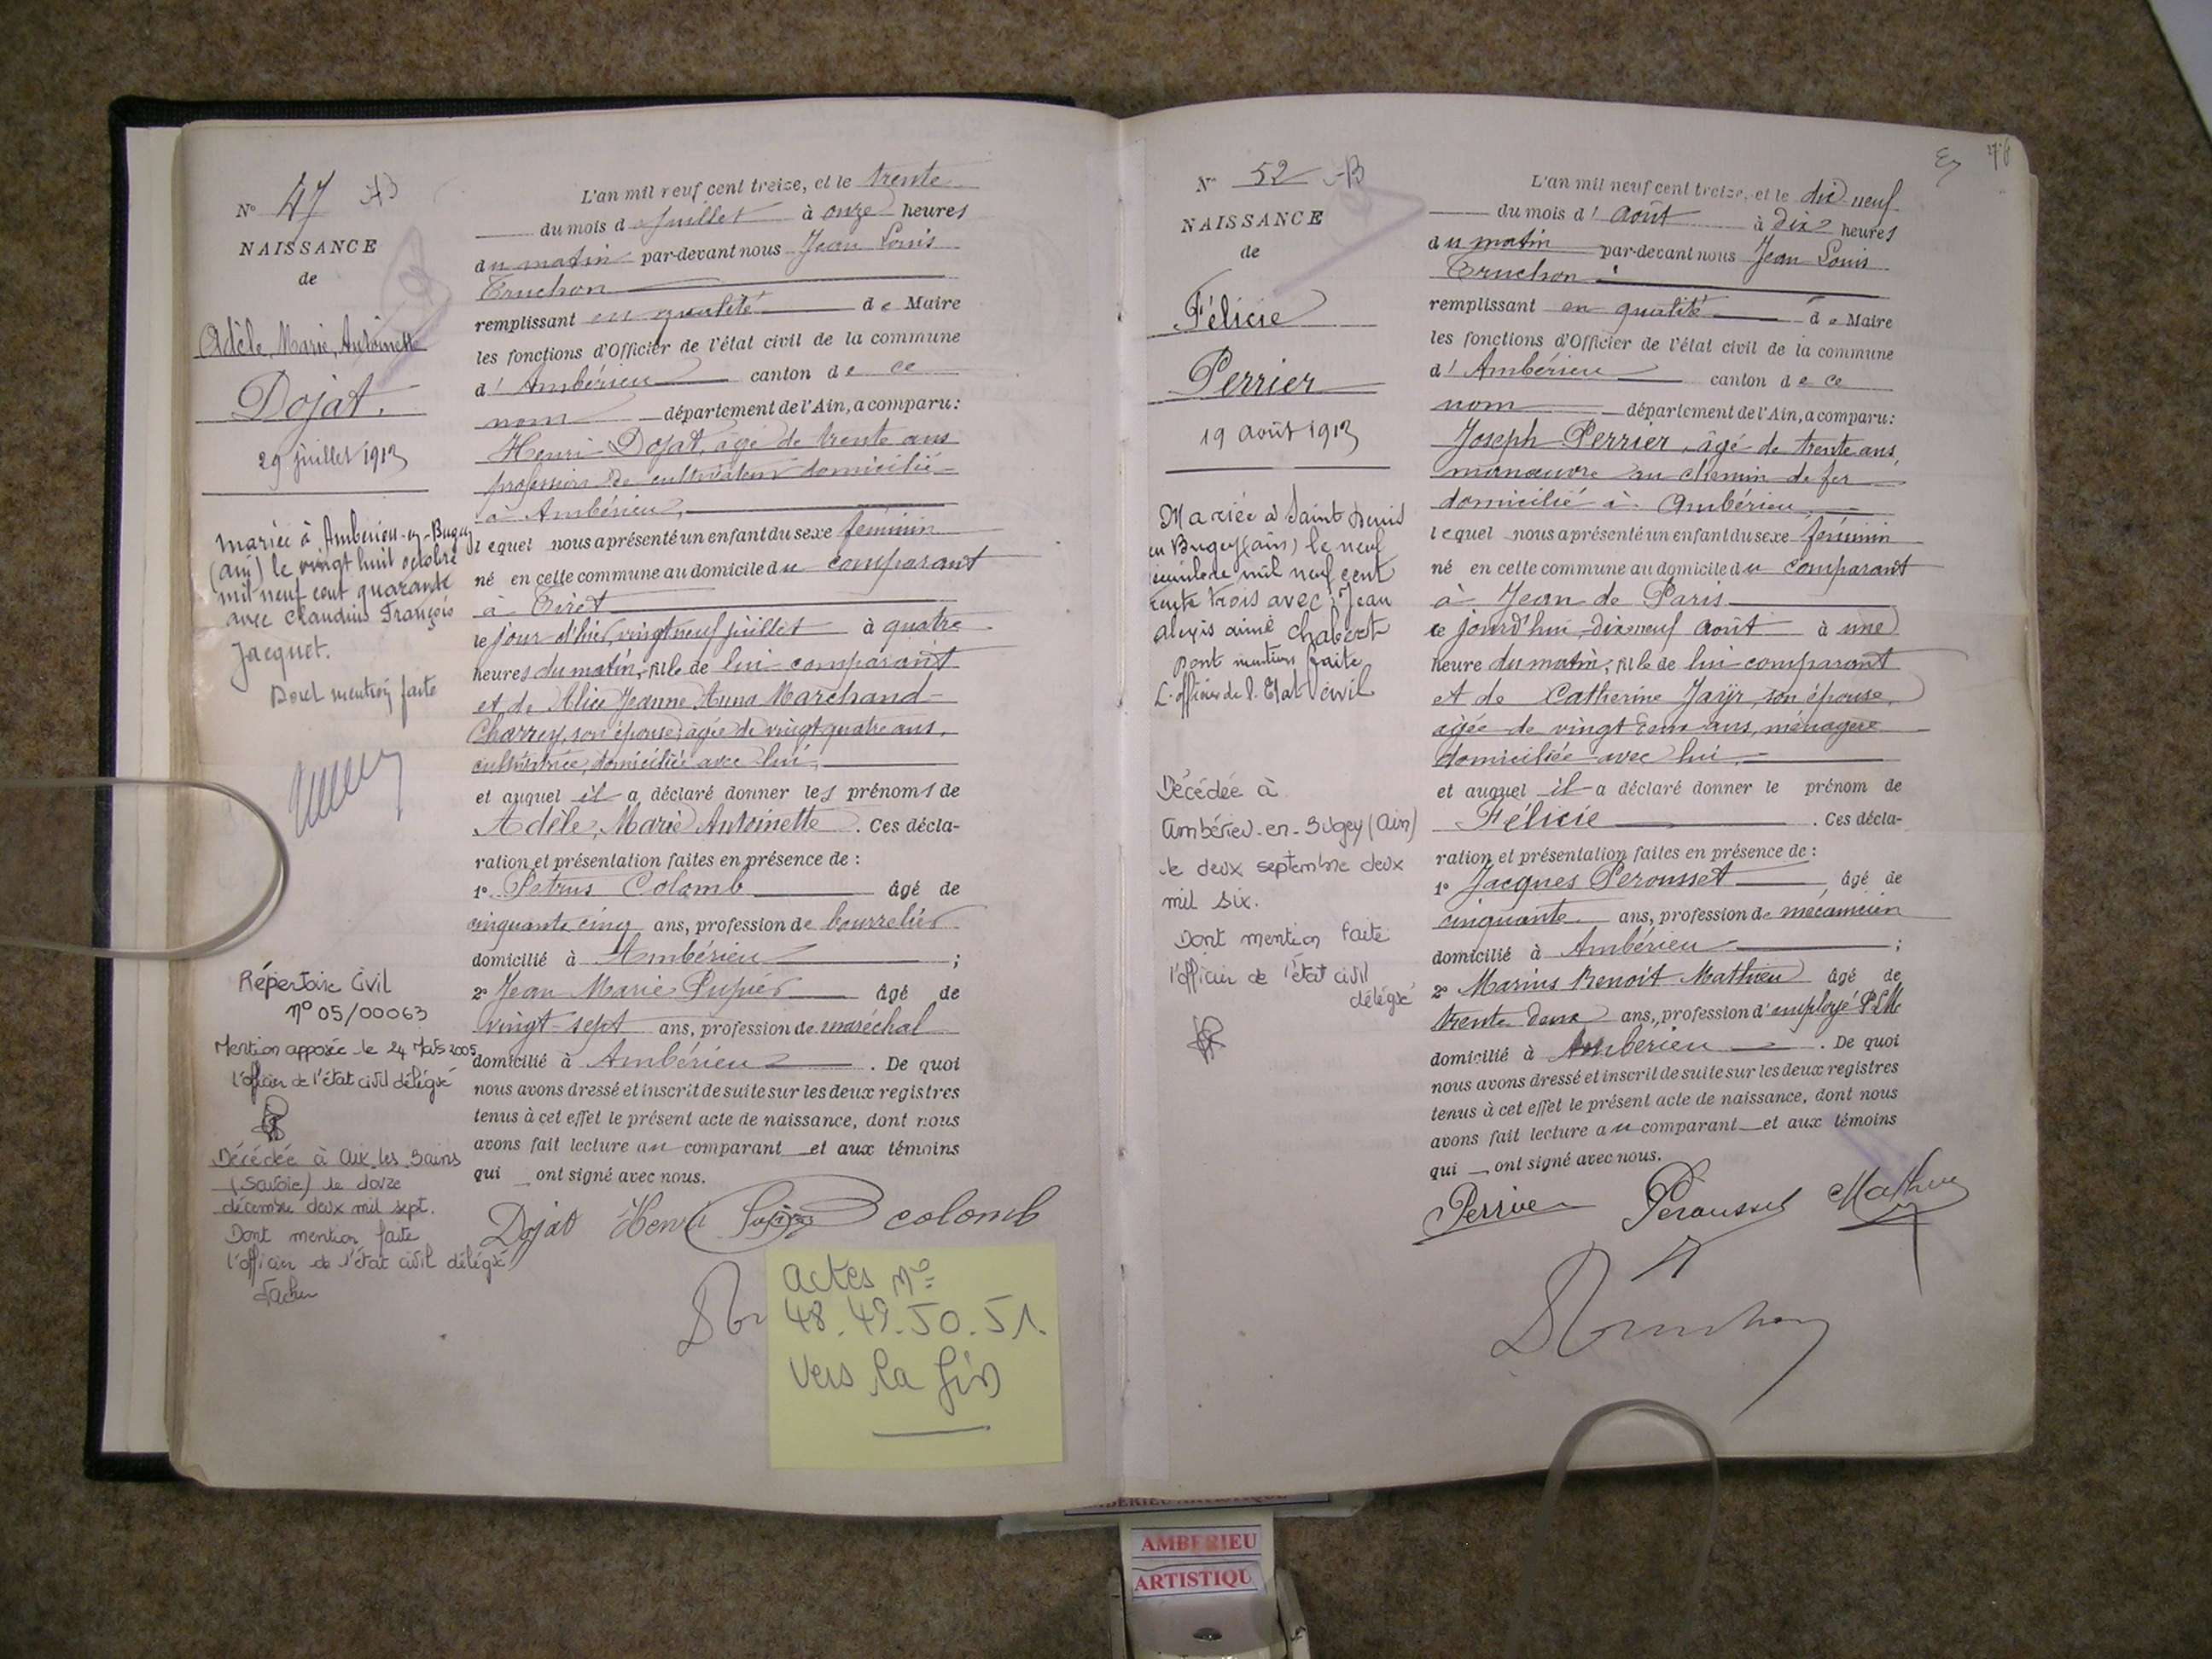 N° 47
NAISSANCE
de
Adèle, Marie, Antoinette
Dojat.
29 juillet 1913
mariée à Ambérieu-en-Bugey
(ain) le vingt huit octobre
mil neuf cent quarante
avec Claudius François
Jacquet.
Dont mention faite
Répertoire Civil
n° 05/00063
Mention apposée le 24 Mars 2005
l'officier de l'état civil délégué
Décédée à Aix les Bains
(Savoie) le douze
décembre deux mil sept.
Dont mention faite
l'officier de l'état civil délégué
L'an mil neuf cent treize, et le trente
du mois de Juillet à onze heures
du matin par-devant nous Jean Louis
Truchon
remplissant en qualité de Maire
les fonctions d'Officier de l'état civil de la commune
d'Ambérieu canton de ce
nom département de l'Ain, a comparu:
Henri Dojat, âgé de trente ans
profession de cultivateur domicilié
à Ambérieu,
lequel nous a présenté un enfant du sexe féminin
né en cette commune au domicile du comparant
à Tiret
le jour d'hier, vingt neuf juillet à quatre
heures du matin, fille de lui comparant
et de Alice Jeanne Anna Marchand
Charrey, son épouse, âgée de vingt quatre ans,
cultivatrice, domiciliée avec lui,
et auquel il a déclaré donner les prénoms de
Adèle, Marie Antoinette. Ces décla-
ration et présentation faites en présence de :
1° Petrus Colomb âgé de
cinquante cinq ans, profession de bourrelier
domicilié à Ambérieu ;
2° Jean Marie Pupier âgé de
vingt-sept ans, profession de maréchal
domicilié à Ambérieu . De quoi
nous avons dressé et inscrit de suite sur les deux registres
tenus à cet effet le présent acte de naissance, dont nous
avons fait lecture au comparant et aux témoins
qui ont signé avec nous.
Dojat Henri Pupier Colomb
actes N°
48.49.50.51.
vers la fin
N° 52
NAISSANCE
de
Félicie
Perrier
19 août 1913
Mariée à Saint Denis
en Bugey (ain) le neuf
mil neuf cent
trente trois avec Jean
alexis aimé Chabert
Dont mention faite
L'officier de l'Etat civil
Décédée à
Ambérieu-en-Bugey (Ain)
le deux septembre deux
mil six.
Dont mention faite
l'officier de l'état civil
délégué
76
L'an mil neuf cent treize, et le dix neuf
du mois d'août à dix heures
du matin par-devant nous Jean Louis
Truchon
remplissant en qualité de Maire
les fonctions d'Officier de l'état civil de la commune
d'Ambérieu canton de ce
nom département de l'Ain, a comparu:
Joseph Perrier, âgé de trente ans,
manœuvre au chemin de fer
domicilié à Ambérieu
lequel nous a présenté un enfant du sexe féminin
né en cette commune au domicile du comparant
à Jean de Paris
ce jourd'hui, dix neuf août à une
heure du matin, fille de lui comparant
et de Catherine Jayr, son épouse,
âgée de vingt deux ans, ménagère
domiciliée avec lui,
et auquel il a déclaré donner le prénom de
Félicie . Ces décla-
ration et présentation faites en présence de :
1° Jacques Perousset âgé de
cinquante ans, profession de mécanicien
domicilié à Ambérieu ;
2° Marius Benoit Mathieu âgé de
trente deux ans, profession d'employé PLM
domicilié à Ambérieu . De quoi
nous avons dressé et inscrit de suite sur les deux registres
tenus à cet effet le présent acte de naissance, dont nous
avons fait lecture au comparant et aux témoins
qui ont signé avec nous.
Perrier Perousset Mathieu
Truchon
AMBERIEU ARTISTIQUE
AMBERIEU
ARTISTIQU